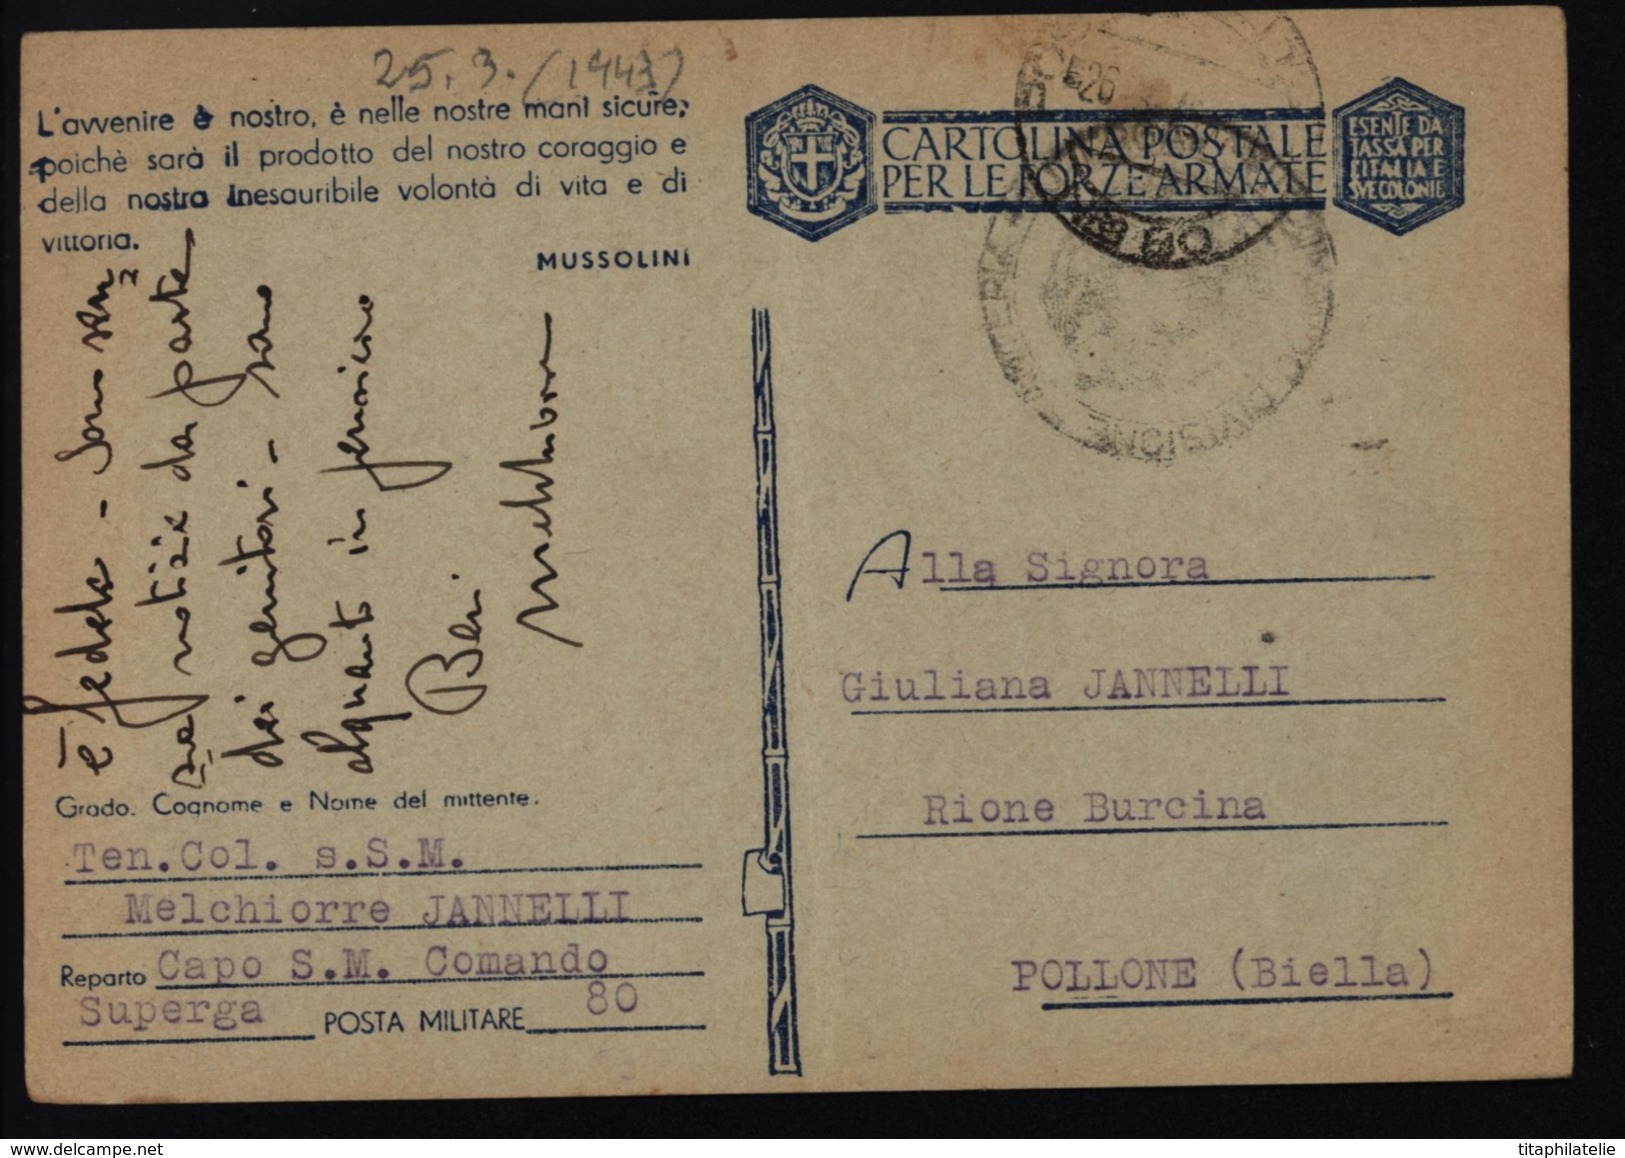 25.3.(1943)
L'avvenire è nostro, è nelle nostre mani sicure,
poichè sarà il prodotto del nostro coraggio e
della nostra inesauribile volontà di vita e di
vittoria.
MUSSOLINI
è fedele - Sono sen
za notizie da parte
dei genitori - sono
alquanto in pensiero
Baci
Melchiorre
Grado. Cognome e Nome del mittente.
Ten.Col. s.S.M.
Melchiorre JANNELLI
Reparto Capo S.M. Comando
Superga POSTA MILITARE 80
CARTOLINA POSTALE
PER LE FORZE ARMATE
ESENTE DA
TASSA PER
L'ITALIA E
SVE COLONIE
80
DIVISIONE
Alla Signora
Giuliana JANNELLI
Rione Burcina
POLLONE (Biella)
delcampe.net
titaphilatelie